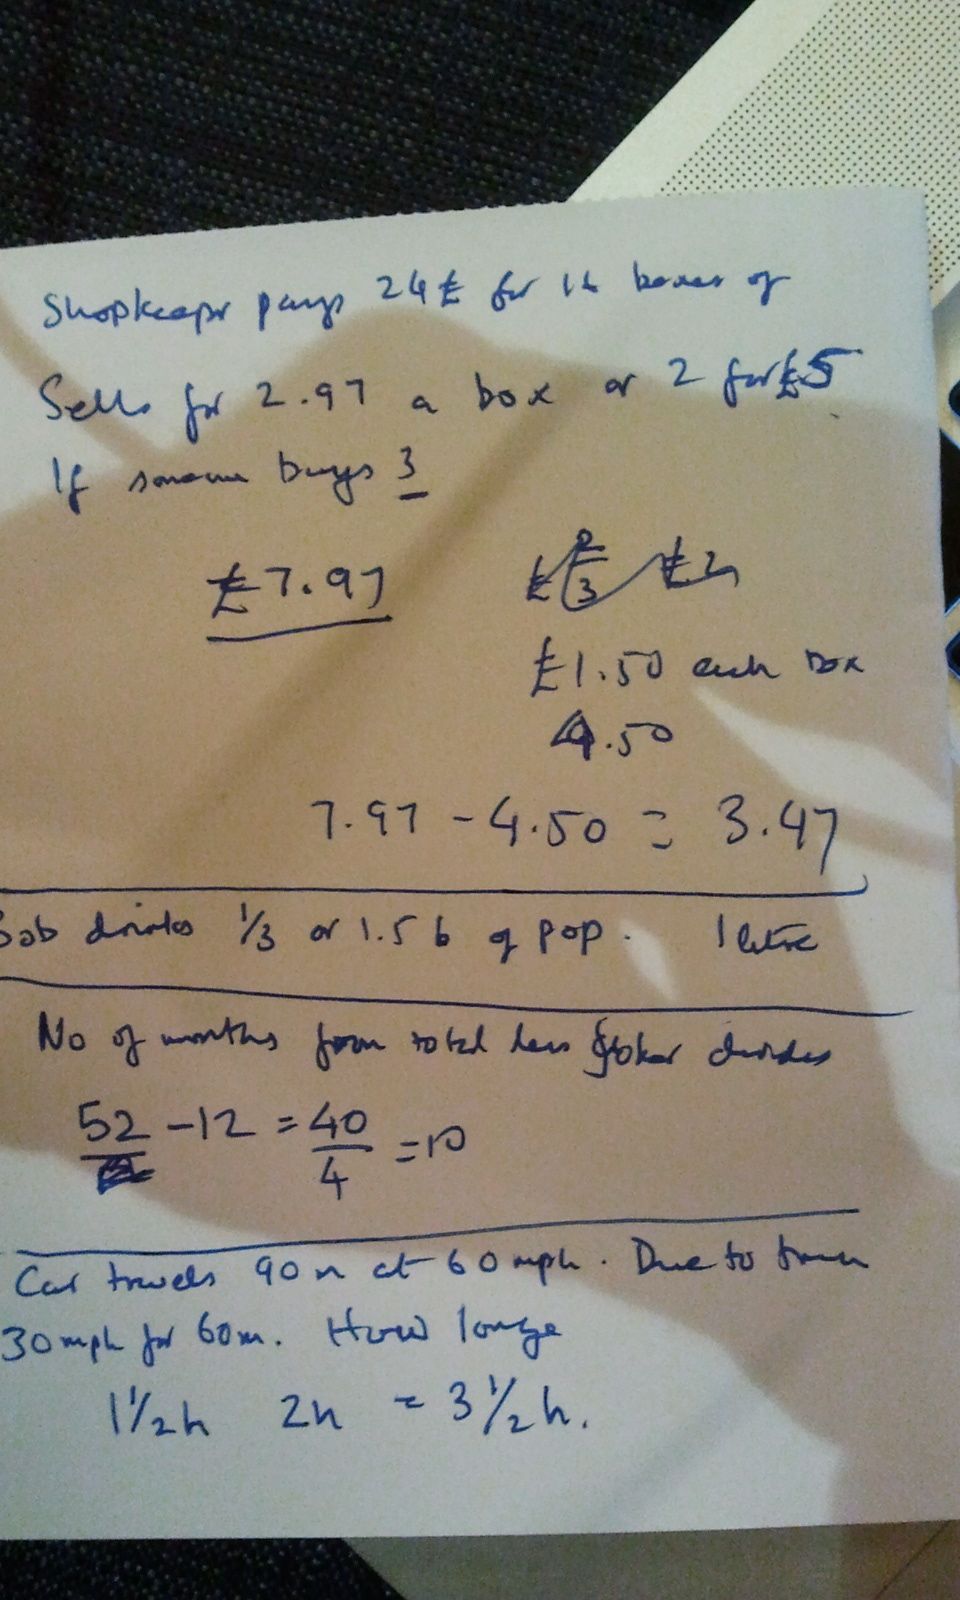 Shopkeepr pays 24£ for 16 boxes of
Sells for 2.97 a box or 2 for £5
If someone buys 3
£7.97
£1.50 each box
4.50
7.97 - 4.50 = 3.47
Bob drinks 1/3 of 1.5 b of pop. 1 litre
No of months from total less joker divides
52 - 12 = 40/4 = 10
Car travels 90m at 60mph. Due to
30mph for 60m. How longe
1 1/2h 2h = 3 1/2h.